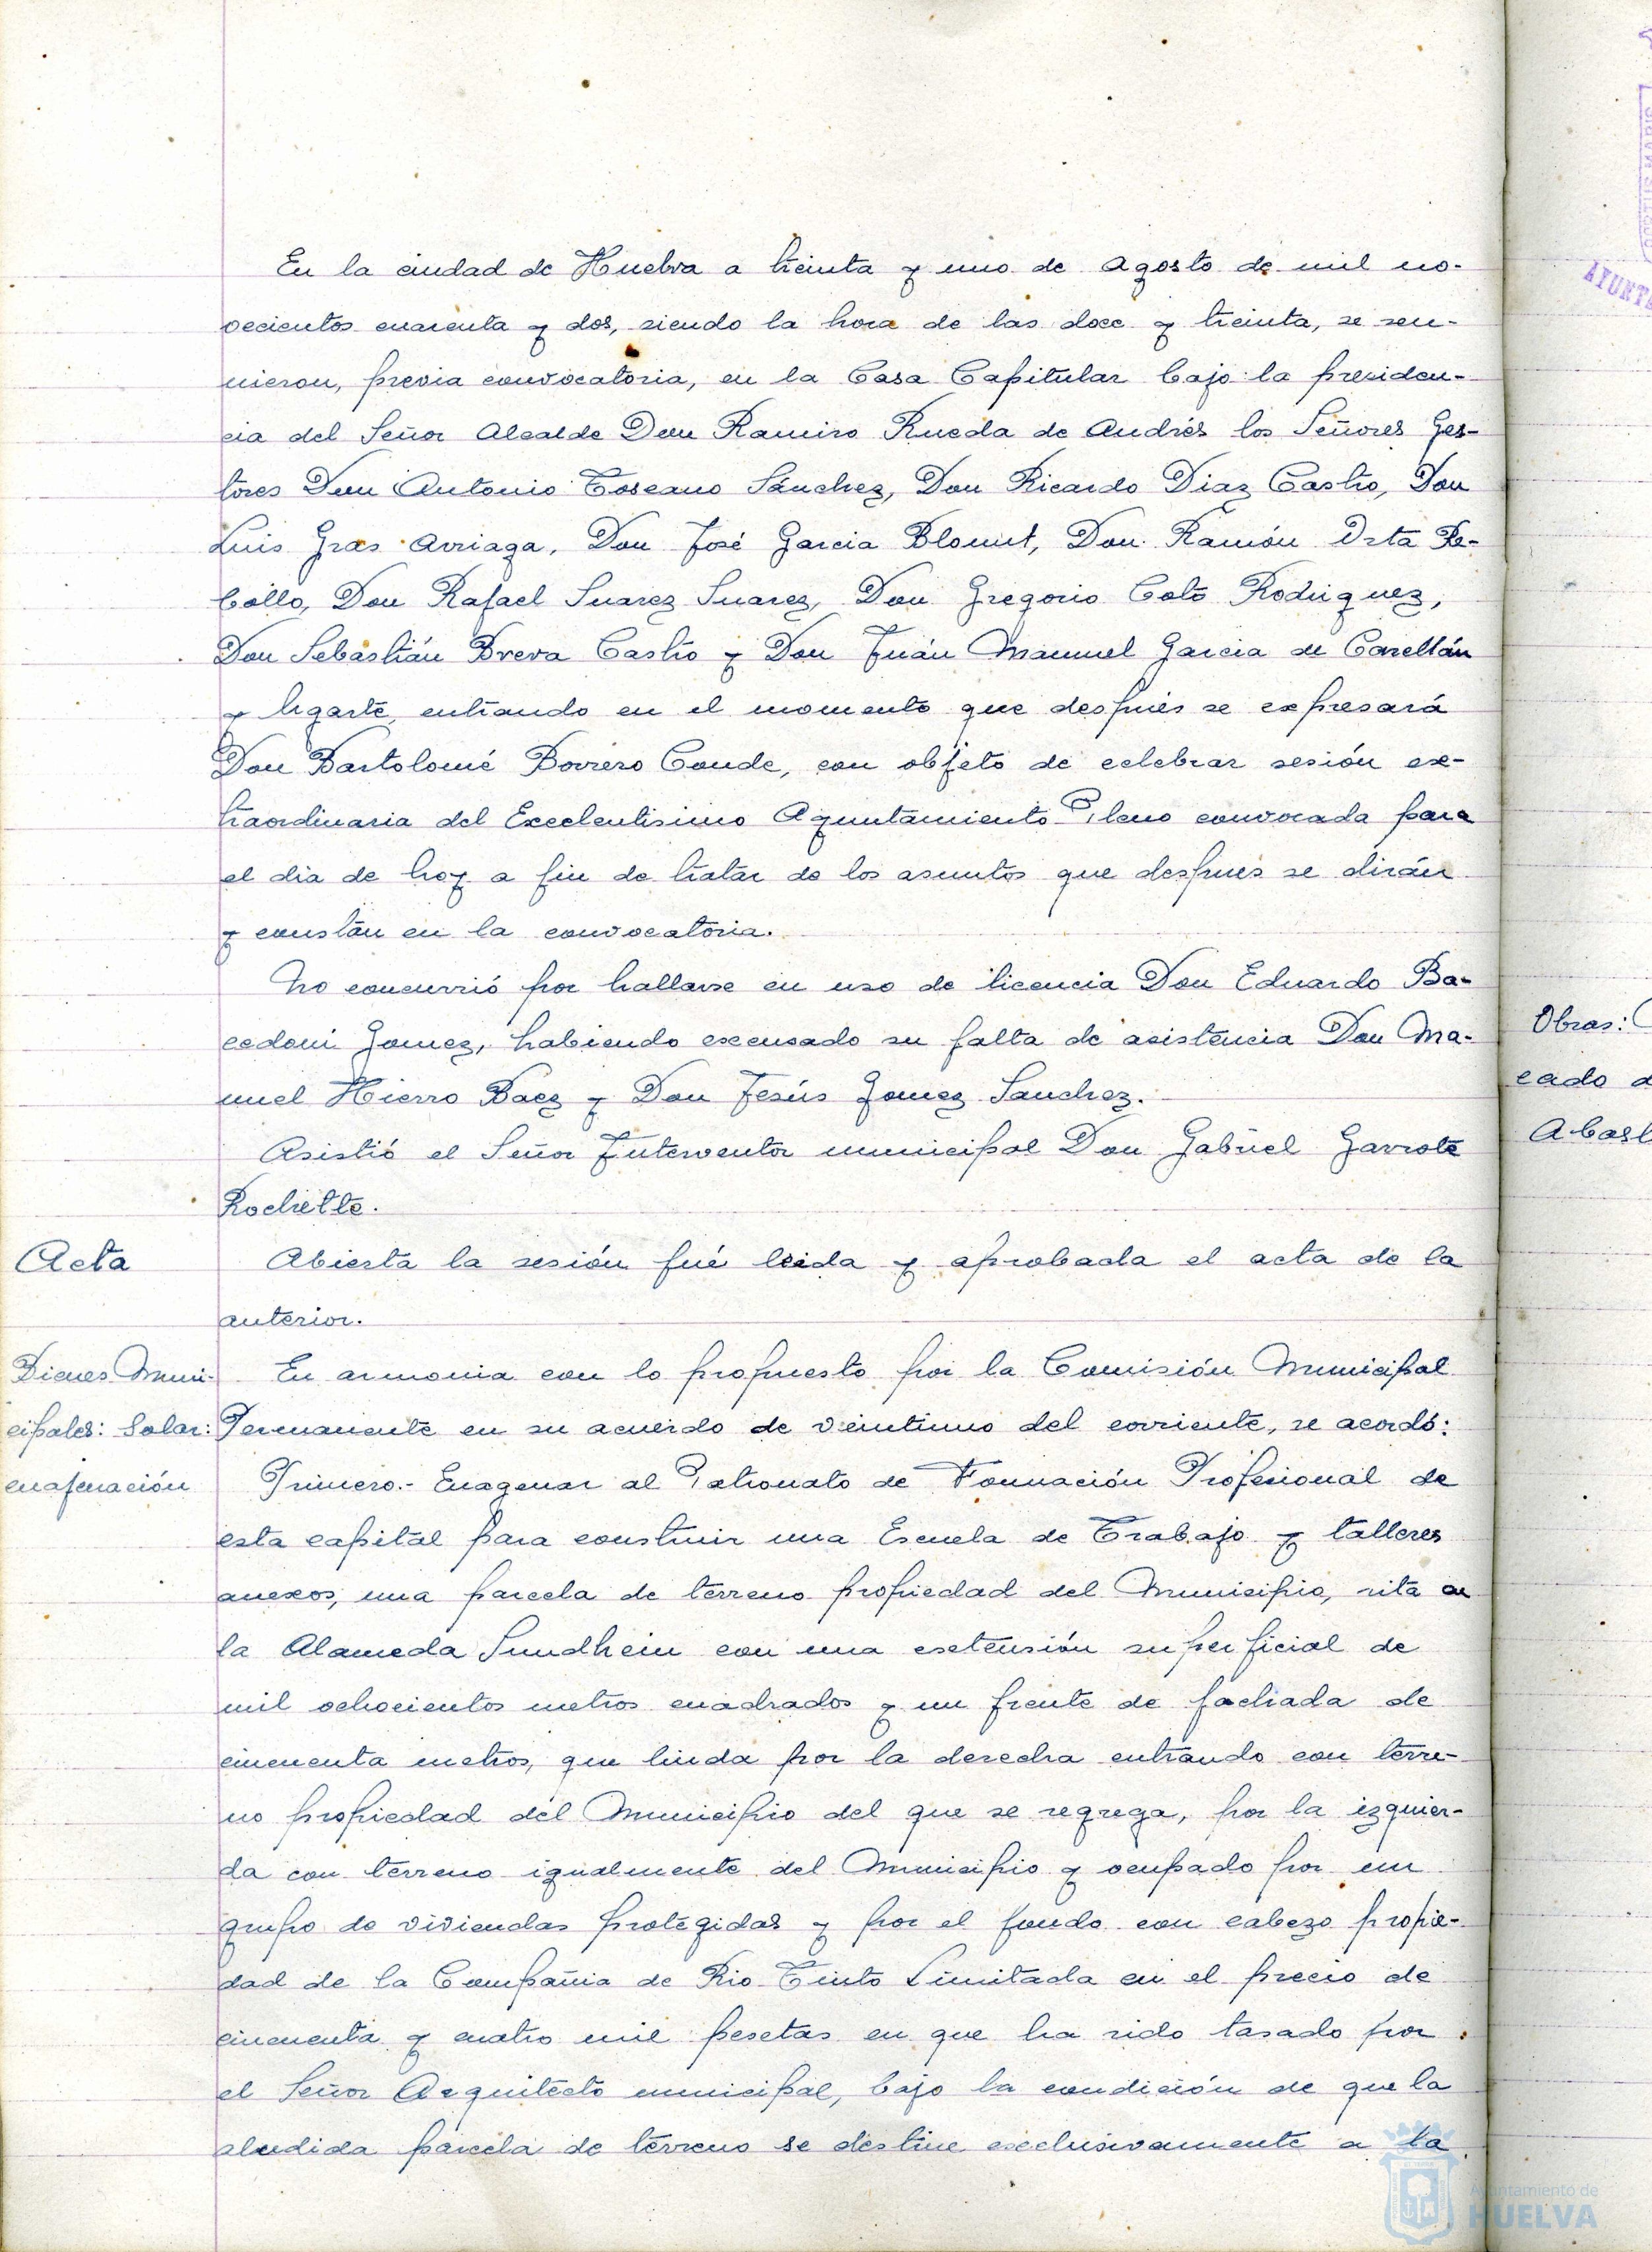 En la ciudad de Huelva a treinta y uno de Agosto de mil no-
vecientos cuarenta y dos, siendo la hora de las doce y treinta, se reu-
nieron, previa convocatoria, en la Casa Capitular bajo la presiden-
cia del Señor Alcalde Don Ramiro Rueda de Andrés los Señores Ges-
tores Don Antonio Toscano Sánchez, Don Ricardo Diaz Castro, Don
Luis Gras Arriaga, Don José Garcia Blount, Don Ramón Orta Re-
bollo, Don Rafael Suarez Suarez, Don Gregorio Coto Rodriguez,
Don Sebastián Breva Castro y Don Juán Manuel Garcia de
y Ugarte, entrando en el momento que después se expresará
Don Bartolomé Borrero Conde, con objeto de celebrar sesión ex-
traordinaria del Excelentisimo Ayuntamiento Pleno convocada para
el dia de hoy a fin de tratar de los asuntos que despues se dirán
y constan en la convocatoria.
No concurrió por hallarse en uso de licencia Don Eduardo Ba-
cedoni Gomez, habiendo excusado su falta de asistencia Don Ma-
nuel Hierro Baez y Don Jesús Gomez Sanchez.
Asistió el Señor Interventor municipal Don Gabriel Garrote
Rochette.
Acta
Abierta la sesión fué leida y aprobada el acta de la
anterior.
Bienes Muni-
cipales: Solar:
enajenación
En armonia con lo propuesto por la Comisión Municipal
Permanente en su acuerdo de veintiuno del corriente, se acordó:
Primero.- Enagenar al Patronato de Formación Profesional de
esta capital para construir una Escuela de Trabajo y talleres
anexos, una parcela de terreno propiedad del Municipio, sita en
la Alameda Sundhein con una extensión superficial de
mil ochocientos metros cuadrados y un frente de fachada de
cincuenta metros, que linda por la derecha entrando con terre-
no propiedad del Municipio del que se segrega, por la izquier-
da con terreno igualmente del Municipio y ocupado por un
grupo de viviendas protegidas y por el fondo con cabezo propie-
dad de la Compañia de Rio-Tinto Limitada en el precio de
cincuenta y cuatro mil pesetas en que ha sido tasado por
el Señor Arquitecto municipal, bajo la condición de que la
aludida parcela de terreno se destine exclusivamente a la
Obras:
cado
Ayuntamiento de
HUELVA